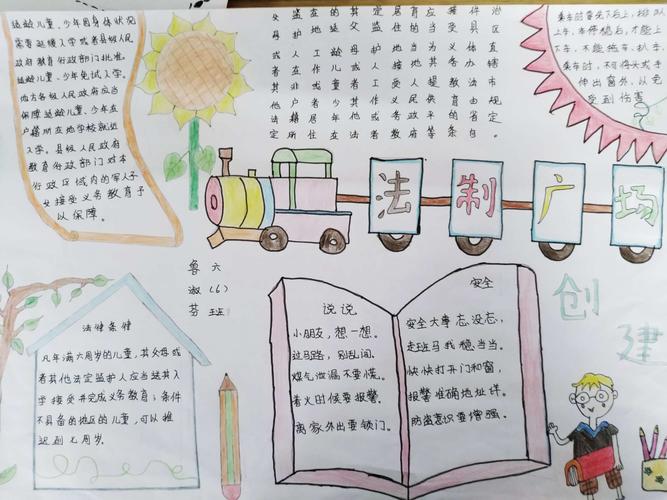 适龄儿童、少年因身体状况
需要延缓入学或者县级人民
政府教育行政部门批准。
适龄儿童、少年免试入学。
地方各级人民政府应当
保障适龄儿童、少年在
户籍所在地学校就近
入学。县级人民政府
教育行政部门对本
行政区域内的军人子
女接受义务教育予
以保障。
父母或者其他法定
监护人在非户籍所
在地工作或者居住
的适龄儿童少年在
其父母或者其他法
定监护人工作或者
居住地接受义务教
育的当地人民政府
应当为其提供平等
接受义务教育的条
件具体办法由省自
治区直辖市规定
乘车时要先下后上,排队
上车,车停稳后,才能上
下车,不能 车、扒车.
乘车时,不可将头或手
伸出窗外,以免
受到伤害
法制广场
创建
鲁淑芬
六(6)班
法律条律
凡年满六周岁的儿童,其父母或
者其他法定监护人应当送其入
学接受并完成义务教育;条件
不具备的地区的儿童,可以推
迟到七周岁。
说说
小朋友,想一想。
过马路,别乱闯。
煤气泄漏不要慌。
着火时候要报警。
离家外出要锁门。
安全
安全大事忘没忘。
走斑马 我稳当当。
快快打开门和窗,
报警准确地址详。
防盗意识要增强。